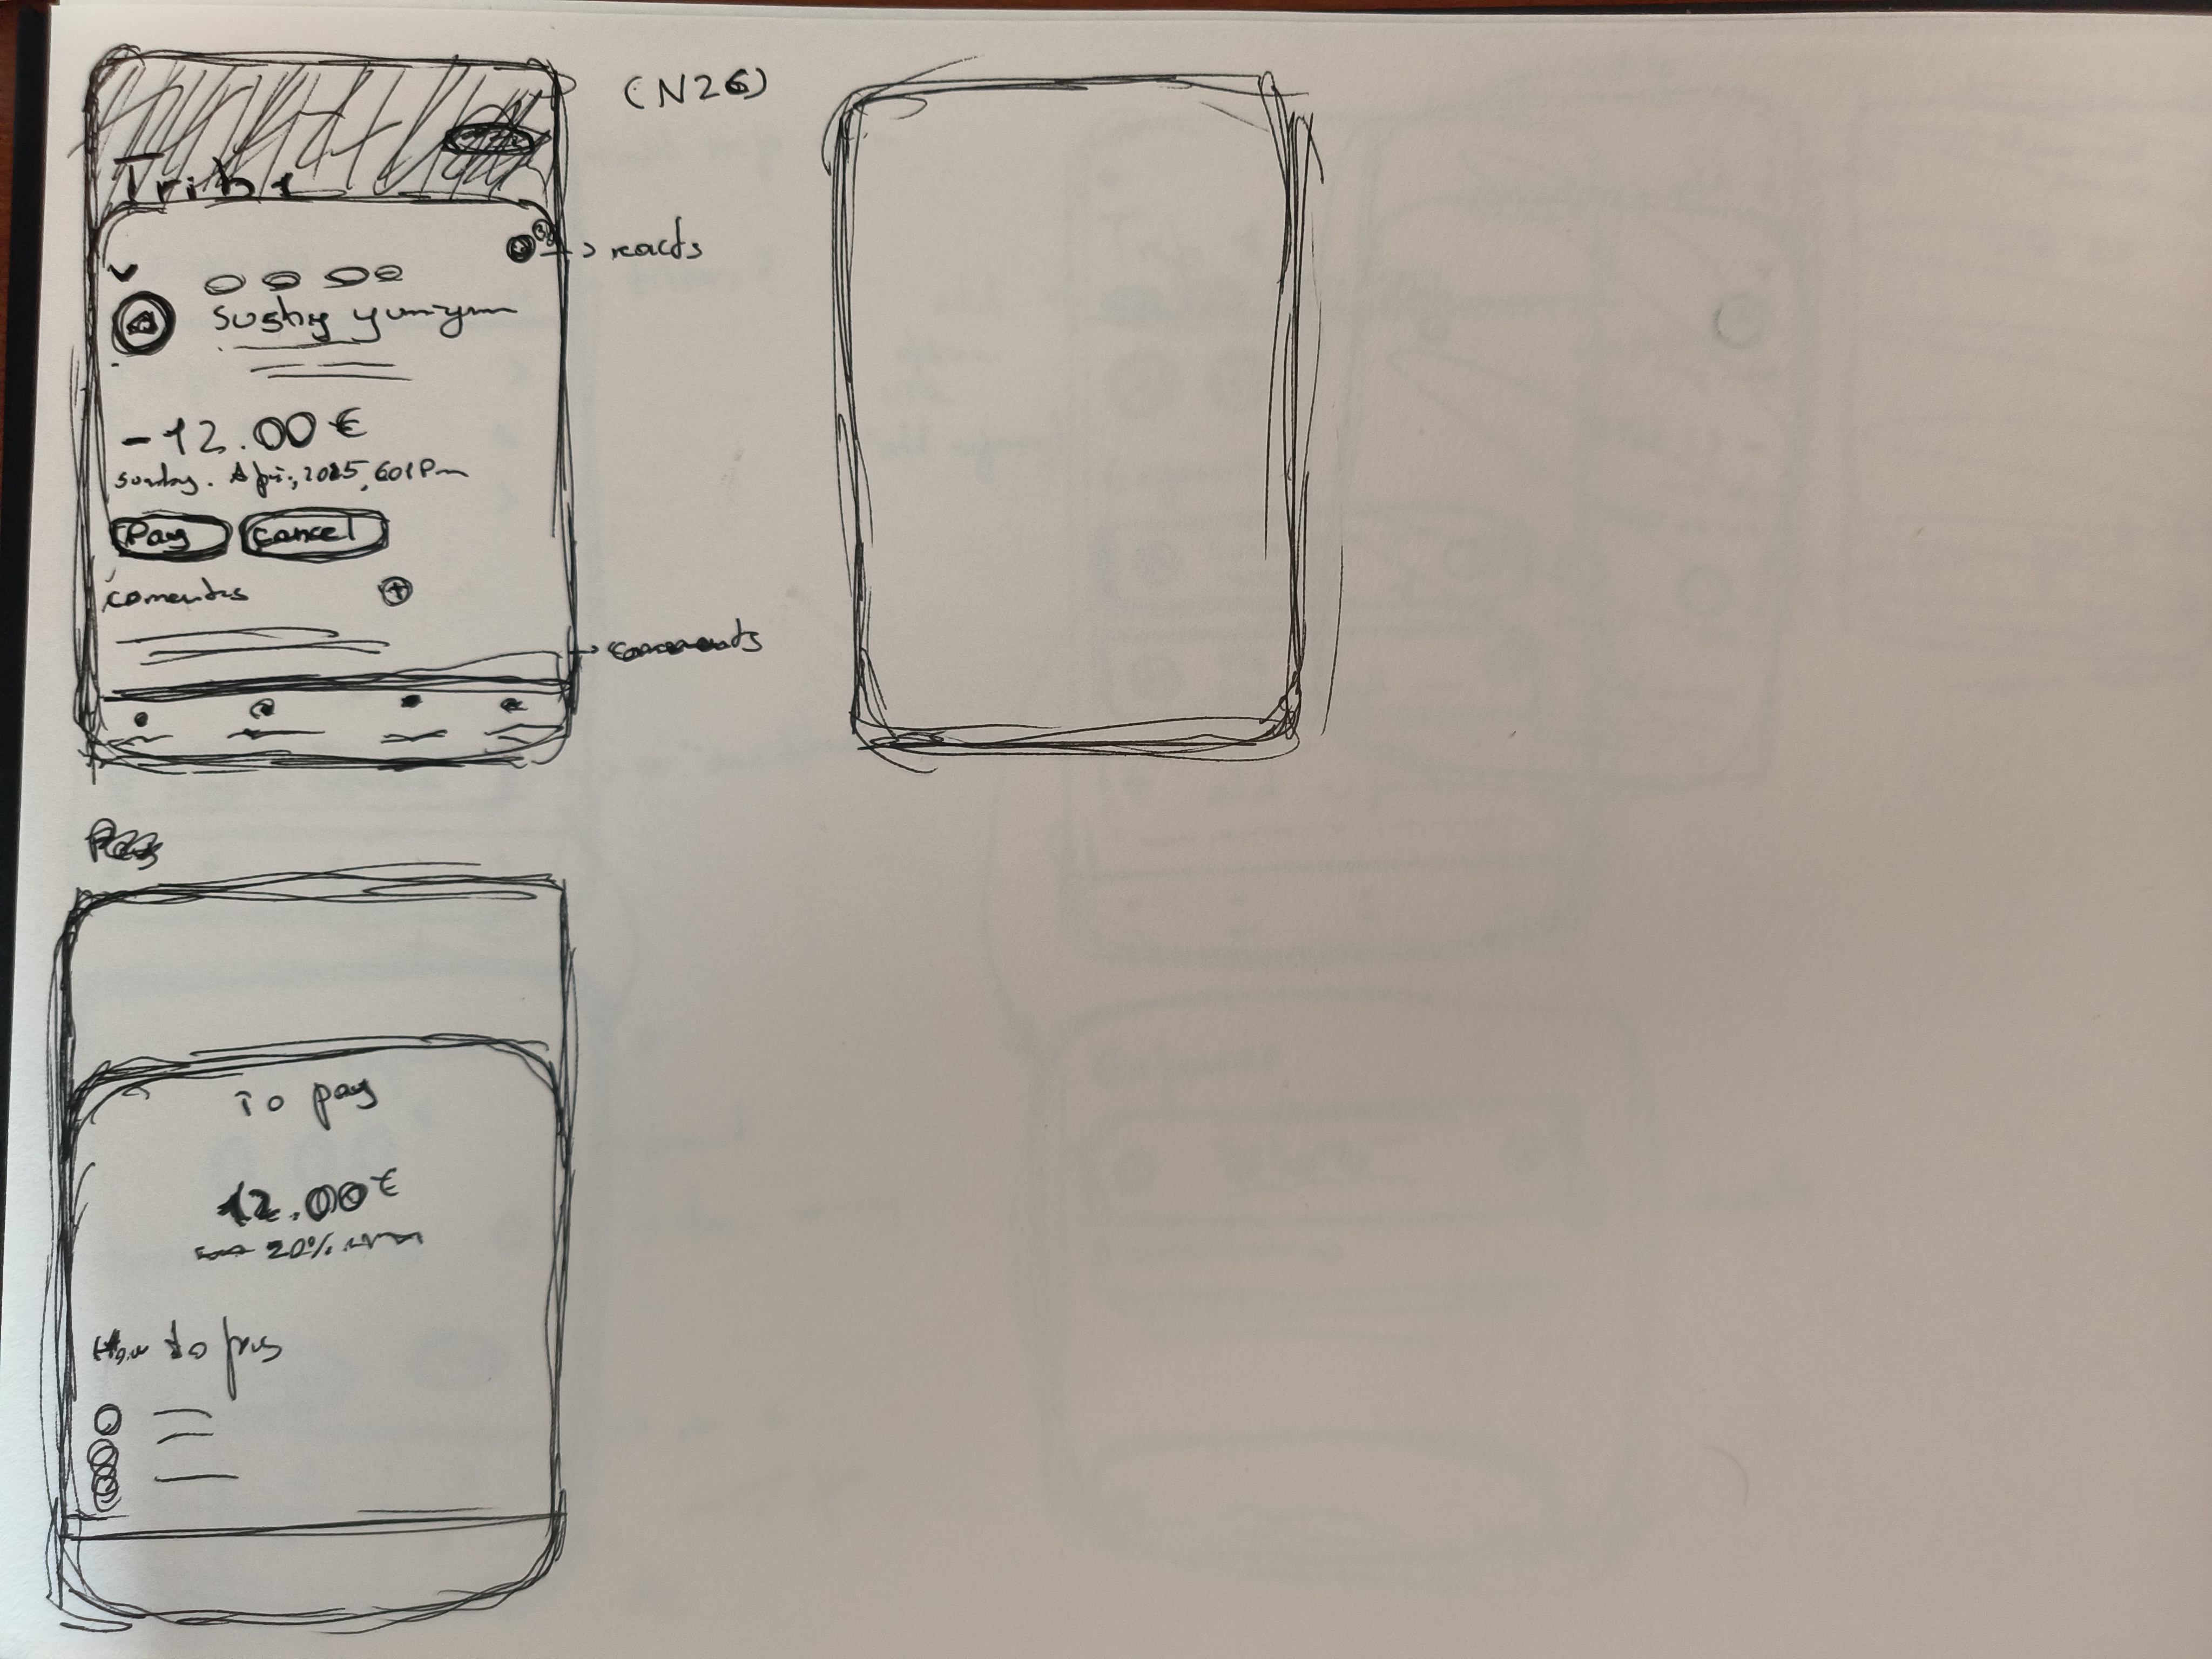 (N26)
Tribe
reacts
Sushy yum yum
-12.00 €
Sunday. Apri, 2025, 6:01 Pm
Pay
Cancel
coments
comments
To pay
12.00€
20%
How to pay